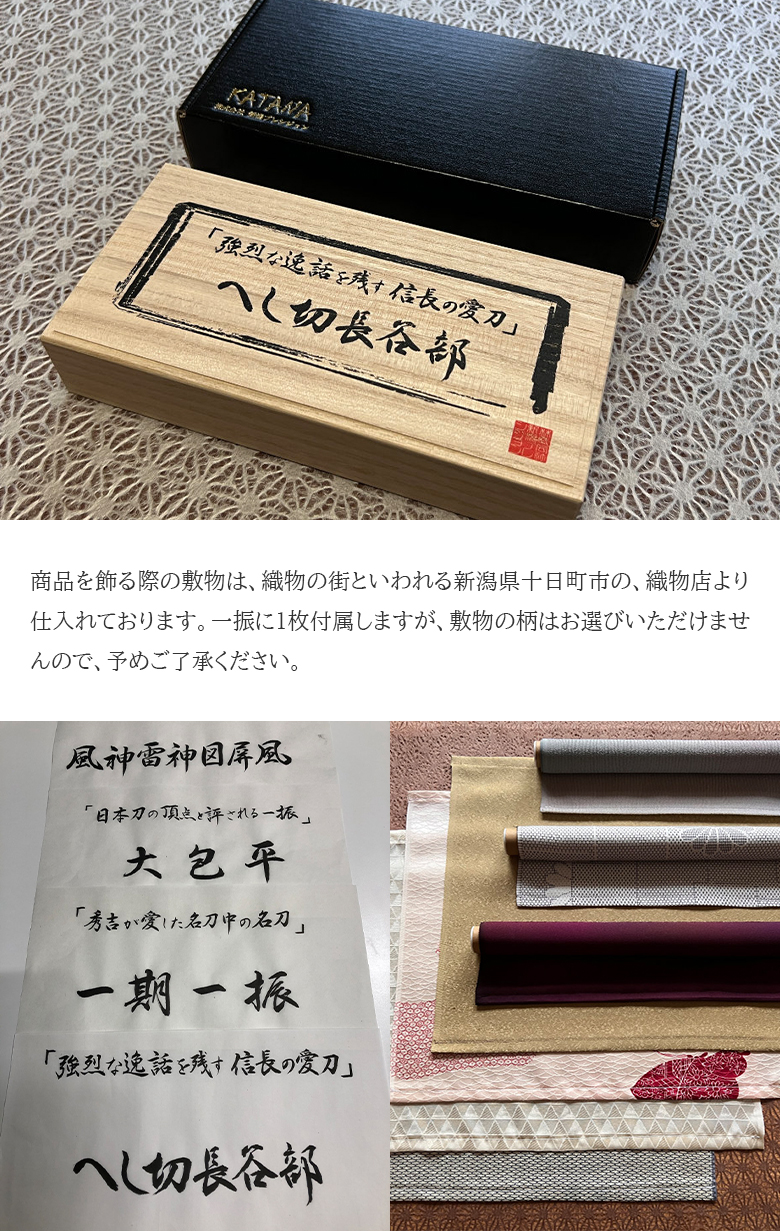 KATANA
「強烈な逸話を残す信長の愛刀」
へし切長谷部
商品を飾る際の敷物は、織物の街といわれる新潟県十日町市の、織物店より
仕入れております。一振に1枚付属しますが、敷物の柄はお選びいただけませ
んので、予めご了承ください。
風神雷神図屏風
「日本刀の頂点と評される一振」
大包平
「秀吉が愛した名刀中の名刀」
一期一振
「強烈な逸話を残す信長の愛刀」
へし切長谷部